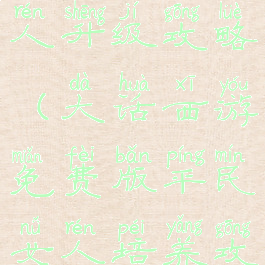 rén shēng jí gōng lüè
人升级攻略
dà huà xī yóu
（大话西游
miǎn fèi bǎn píng mín
免费版平民
nǚ rén péi yǎng gōng
女人培养攻